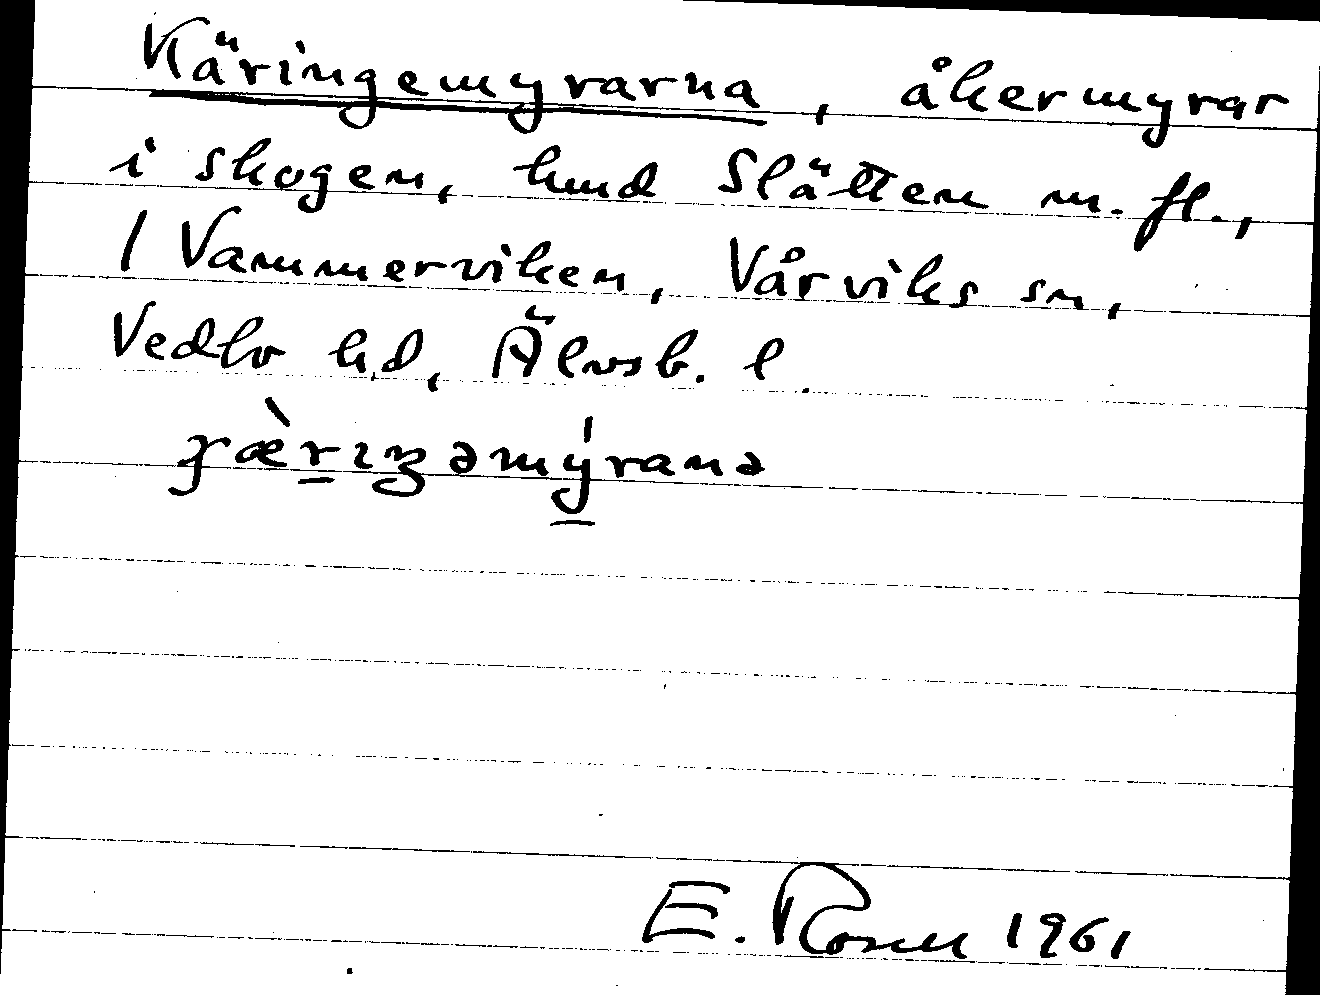 Käringemyrarna, åkermyrar
i skogen, kund Slätten m. fl.,
/ Vammerviken, Vårviks sn,
Vedbo hd, Älvsb. l.
E. Rosell 1961